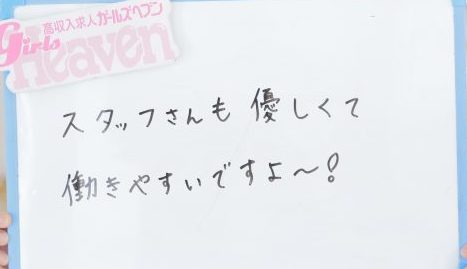 高収入求人ガールズヘブン
Girls
Heaven
スタッフさんも優しくて
働きやすいですよ～!